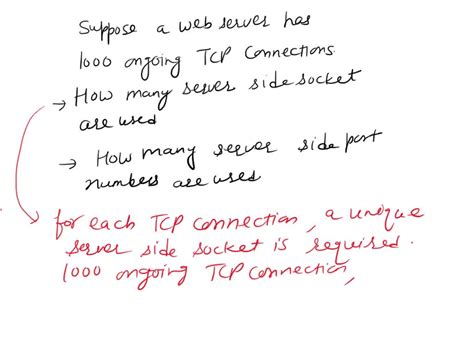 Suppose a web server has
1000 ongoing TCP Connections.
→ How many server side socket
are used
→ How many server side port
numbers are used
for each TCP connection, a unique
server side socket is required.
1000 ongoing TCP connection,